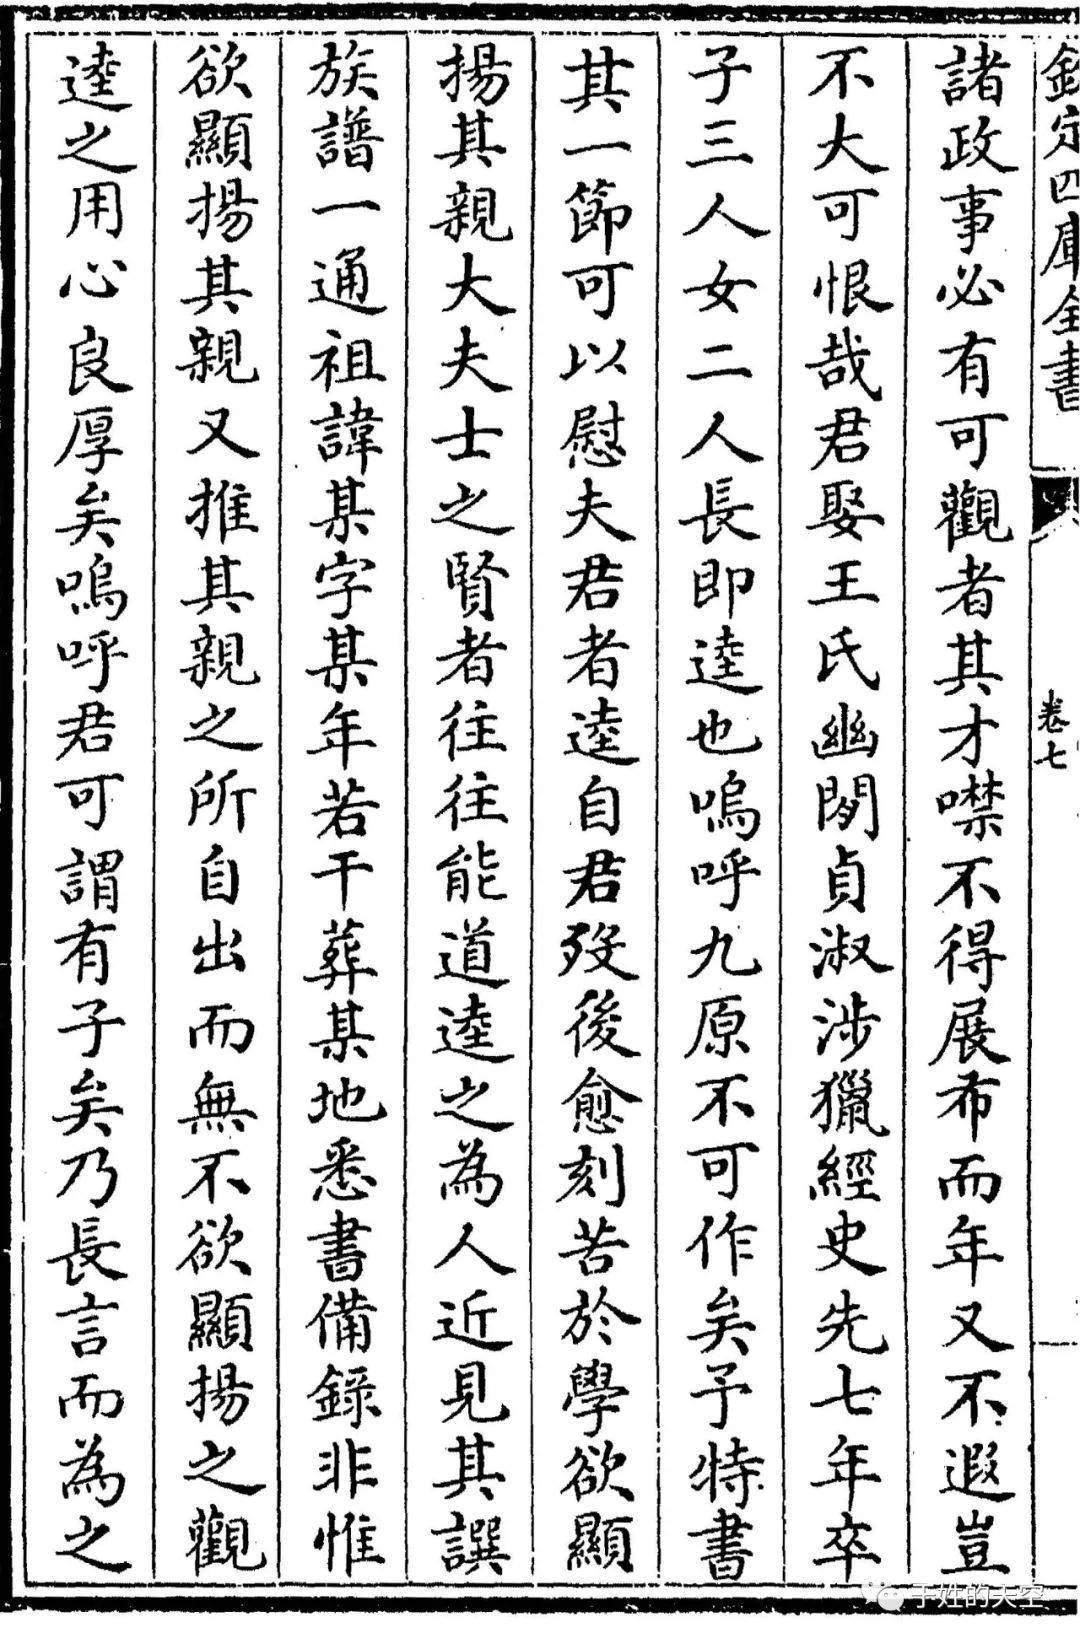 欽定四庫全書
卷七
諸政事必有可觀者其才噤不得展布而年又不遐豈
不大可恨哉君娶王氏幽閒貞淑涉獵經史先七年卒
子三人女二人長即逵也嗚呼九原不可作矣予特書
其一節可以慰夫君者逵自君歿後愈刻苦於學欲顯
揚其親大夫士之賢者往往能道逵之為人近見其譔
族譜一通祖諱某字某年若干葬某地悉書備錄非惟
欲顯揚其親又推其親之所自出而無不欲顯揚之觀
逵之用心良厚矣嗚呼君可謂有子矣乃長言而為之
于姓的天空